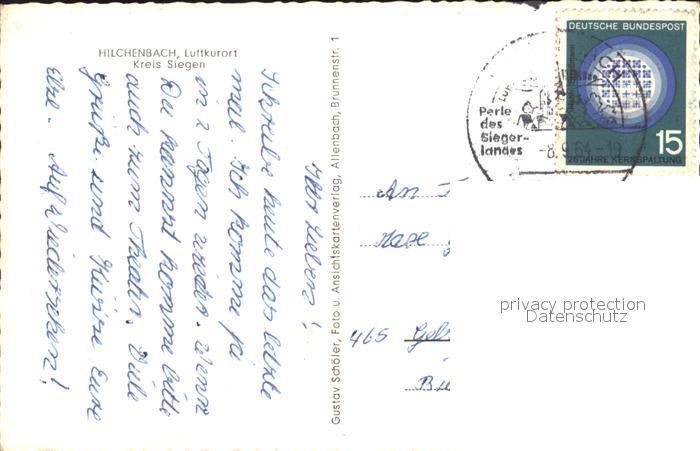 HILCHENBACH, Luftkurort
Kreis Siegen
Ihr Lieben!
Schreibe heute das letzte
mal. Ich komme ja
in 2 Tagen wieder. Wenn
Du kannst komme bitte
auch zum Theater. Viele
Grüße und Küsse Eure
Auf Wiedersehen!
Gustav Schöler, Foto u. Ansichtskartenverlag, Allenbach, Brunnenstr. 1
Perle
des
Sieger-
landes
-8.9.64-19
DEUTSCHE BUNDESPOST
15
25 JAHRE KERNSPALTUNG
An
465
privacy protection
Datenschutz